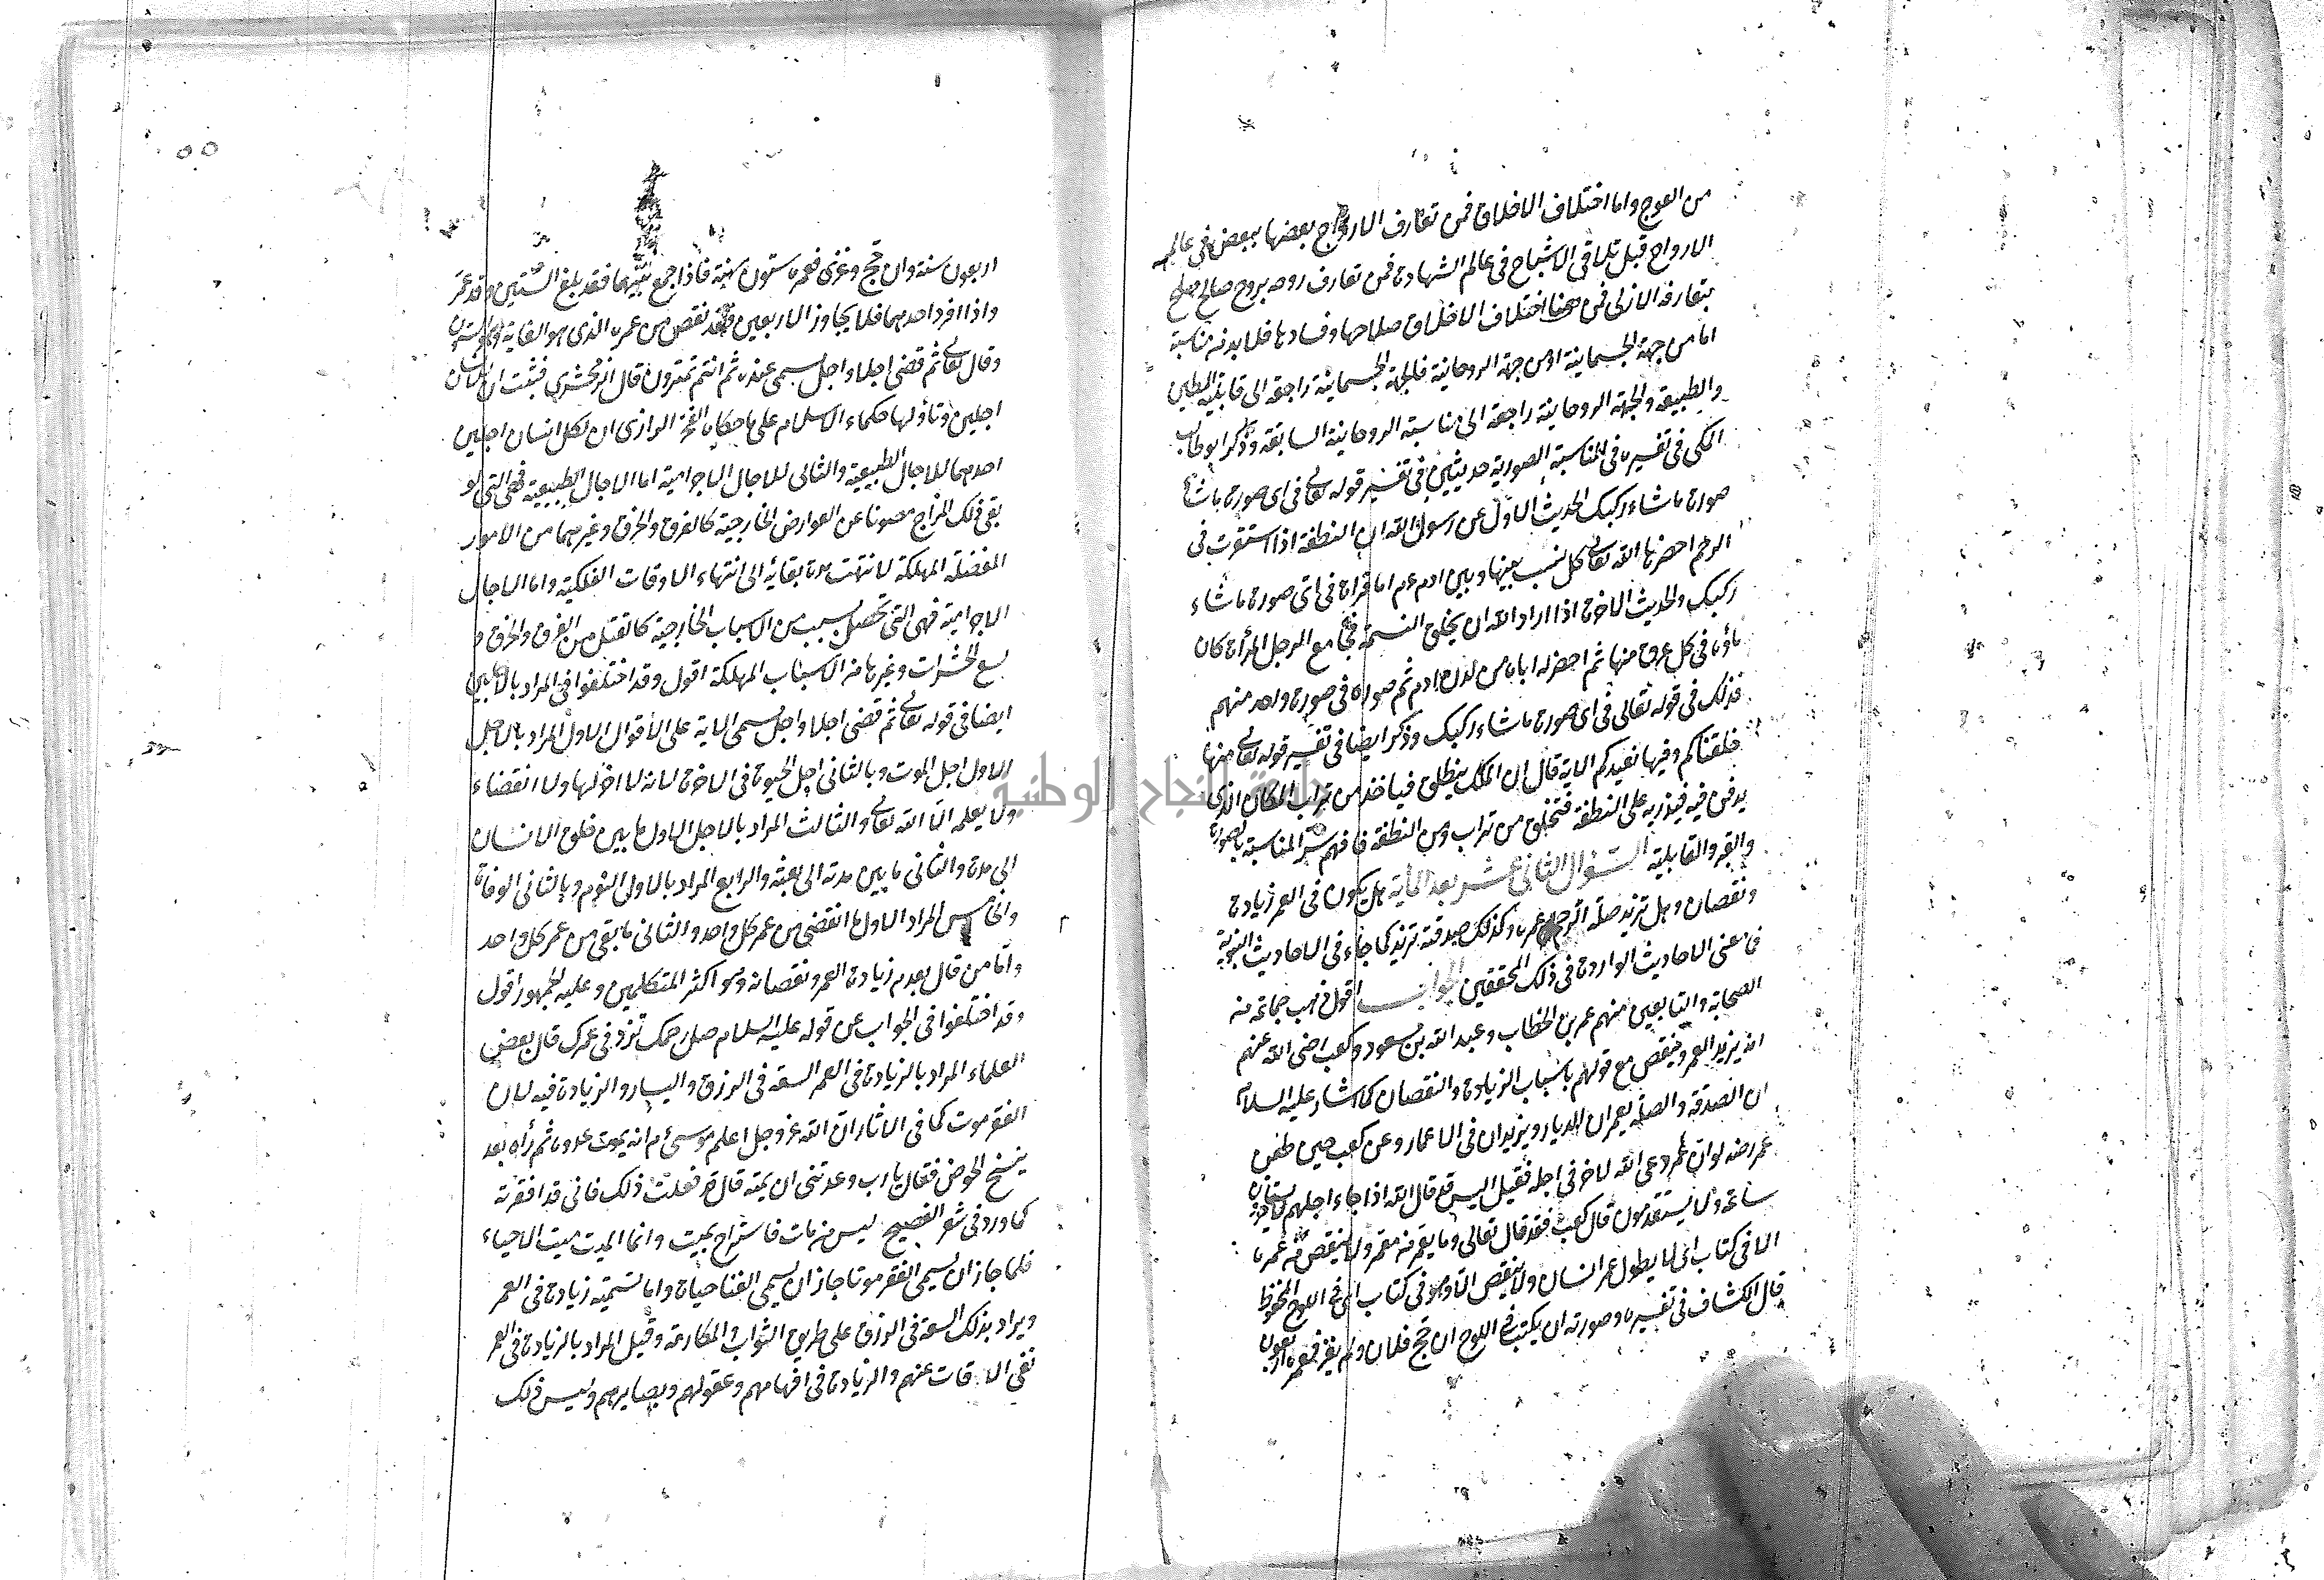 من العوج واما اختلاف الاخلاق فمن تعارف الارواح بعضها ببعض فى عالم
الارواح قبل تلاقى الاشباح فى عالم الشهادة فمن تعارف روحه بروح صالح صلح
بتعارفه الازلى فمن ههنا اختلاف الاخلاق صلاحها وفسادها فلا بد من مناسبة
اما من جهة الجسمانية او من جهة الروحانية فالجهة الجسمانية راجعة الى قابلية الطين
والطبيعة والجهة الروحانية راجعة الى مناسبة الروحانية السابقة وذكر ابو طالب
المكى فى تفسيره فى المناسبة الصورية حديثين فى تفسير قوله تعالى فى اى صورة ما شاء
صورة ما شاء ركبك الحديث الاول عن رسول الله ان النطفة اذا استقرت فى
الرحم احضرها الله تعالى كل نسب بينها وبين ادم عم اما قراة فى اى صورة ما شاء
ركبك والحديث الاخر اذا اراد الله ان يخلق النسمة فجامع الرجل المرأة كان
ماؤه فى كل عرق منها ثم احضر له اباه من لدن ادم ثم صوره فى صورة واحد منهم
فذلك فى قوله تعالى فى اى صورة ما شاء ركبك وذكر ايضا فى تفسير قوله تعالى منها
خلقناكم وفيها نعيدكم الاية قال ان الملك ينطلق فيأخذ من تراب المكان الذى
يدفن فيه فيذريه على النطفة فتخلق من تراب ومن النطفة فافهم سر المناسبة بصورة
والقبر والقابلية السؤال الثانى عشر بعد المأية هل يكون فى العمر زيادة
ونقصان وهل تزيد صلة الرحم عمره وكذلك صدقته تزيد كما جاء فى الاحاديث النبوية
فما معنى الاحاديث الواردة فى ذلك المحققين الجواب اقول ذهب جماعة من
الصحابة والتابعين منهم عمر بن الخطاب وعبد الله بن مسعود وكعب رضى الله عنهم
انه يزيد العمر وينقص مع قولهم باسباب الزيادة والنقصان كما اشار عليه السلام
ان الصدقة والصلة يعمران الديار ويزيدان فى الاعمار وعن كعب حين طعن
عمر رضه لو ان عمر دعى الله لاخر فى اجله فقيل اليس قد قال الله اذا جاء اجلهم لا يستأخرون
ساعة ولا يستقدمون قال كعب فقد قال تعالى وما يعمر من معمر ولا ينقص من عمره
الا فى كتاب اى لا يطول عمر انسان ولا ينقص الا وهو فى كتاب اى فى اللوح المحفوظ
قال الكشاف فى تفسيره وصورته ان يكتب فى اللوح ان حج فلان ولم يغز فعمره اربعون
اربعون سنة وان حج وغزى فعمره ستون سنة فاذا جمع بينهما فقد بلغ الستين وقد عمر
واذا افرد احدهما فلا يجاوز الاربعين فقد نقص من عمره الذى هو الغاية وهو الستون
وقال تعالى ثم قضى اجلا واجل مسمى عنده ثم انتم تمترون قال الزمخشرى فثبت ان للانسان
اجلين وتأولها حكماء الاسلام على ما حكاه الفخر الرازى ان لكل انسان اجلين
احدهما للاجال الطبيعية والثانى للاجال الاخرامية اما الاجال الطبيعية فهى التى لو
بقى ذلك المزاج مصونا عن العوارض الخارجية كالغرق والحرق وغيرهما من الامور
المفضلة المهلكة لانتهت مدة بقائه الى انتهاء الاوقات الفلكية واما الاجال
الاخرامية فهى التى تحصل بسبب من الاسباب الخارجية كالقتل من الغرق والحرق و
لسع الحشرات وغيرها من الاسباب المهلكة اقول وقد اختلفوا فى المراد بالاجلين
ايضا فى قوله تعالى ثم قضى اجلا واجل مسمى الاية على الأقوال الاول المراد بالاجل
الاول اجل الموت وبالثانى اجل الحيوة فى الاخرة لانه لا اخر لها ولا انقضاء
ولا يعلمه الا الله تعالى والثالث المراد بالاجل الاول ما بين خلق الانسان
الى مدة والثانى ما بين مدته الى بعثه والرابع المراد بالاول النوم وبالثانى الوفاة
والخامس المراد الاول ما انقضى من عمر كل واحد والثانى ما بقى من عمر كل واحد
واما من قال بعدم زيادة العمر ونقصانه وهو اكثر المتكلمين وعليه الجمهور اقول
وقد اختلفوا فى الجواب عن قوله عليه السلام صل رحمك تزد فى عمرك قال بعض
العلماء المراد بالزيادة فى العمر السعة فى الرزق واليسار والزيادة فيه لان
الفقر موت كما فى الاثار ان الله عز وجل اعلم موسى عم انه يموت عدوه ثم رأه بعد
ينسج الخوض فقال يا رب وعدتنى ان يمته قال قد فعلت ذلك فانى قد افقرته
كما ورد فى شعر الفصيح ليس من مات فاستراح بميت وانما الميت ميت الاحياء
فلما جاز ان يسمى الفقر موتا جاز ان يسمى الغنا حياة واما تسميته زيادة فى العمر
ويراد بذلك السعة فى الرزق على طريق الثواب والمكارمة وقيل المراد بالزيادة فى العمر
نفى الافات عنهم والزيادة فى افهامهم وعقولهم وبصايرهم وليس ذلك
جامعة النجاح الوطنية